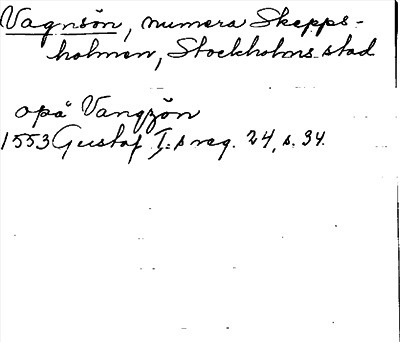 Vagnsön, numera Skepps-
holmen, Stockholms stad
opå Vangzön
1553 Gustaf I:s reg. 24, s. 34.